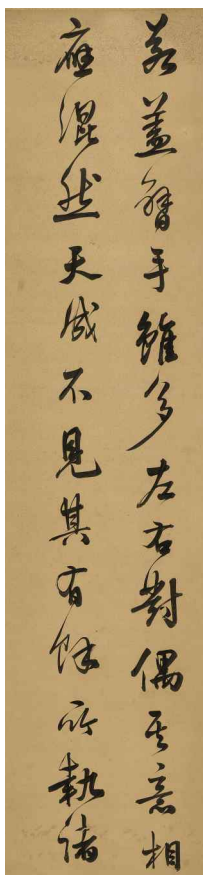 若蓋臂手雖多左右對偶其意相
應混然天成不見其有餘所執諸